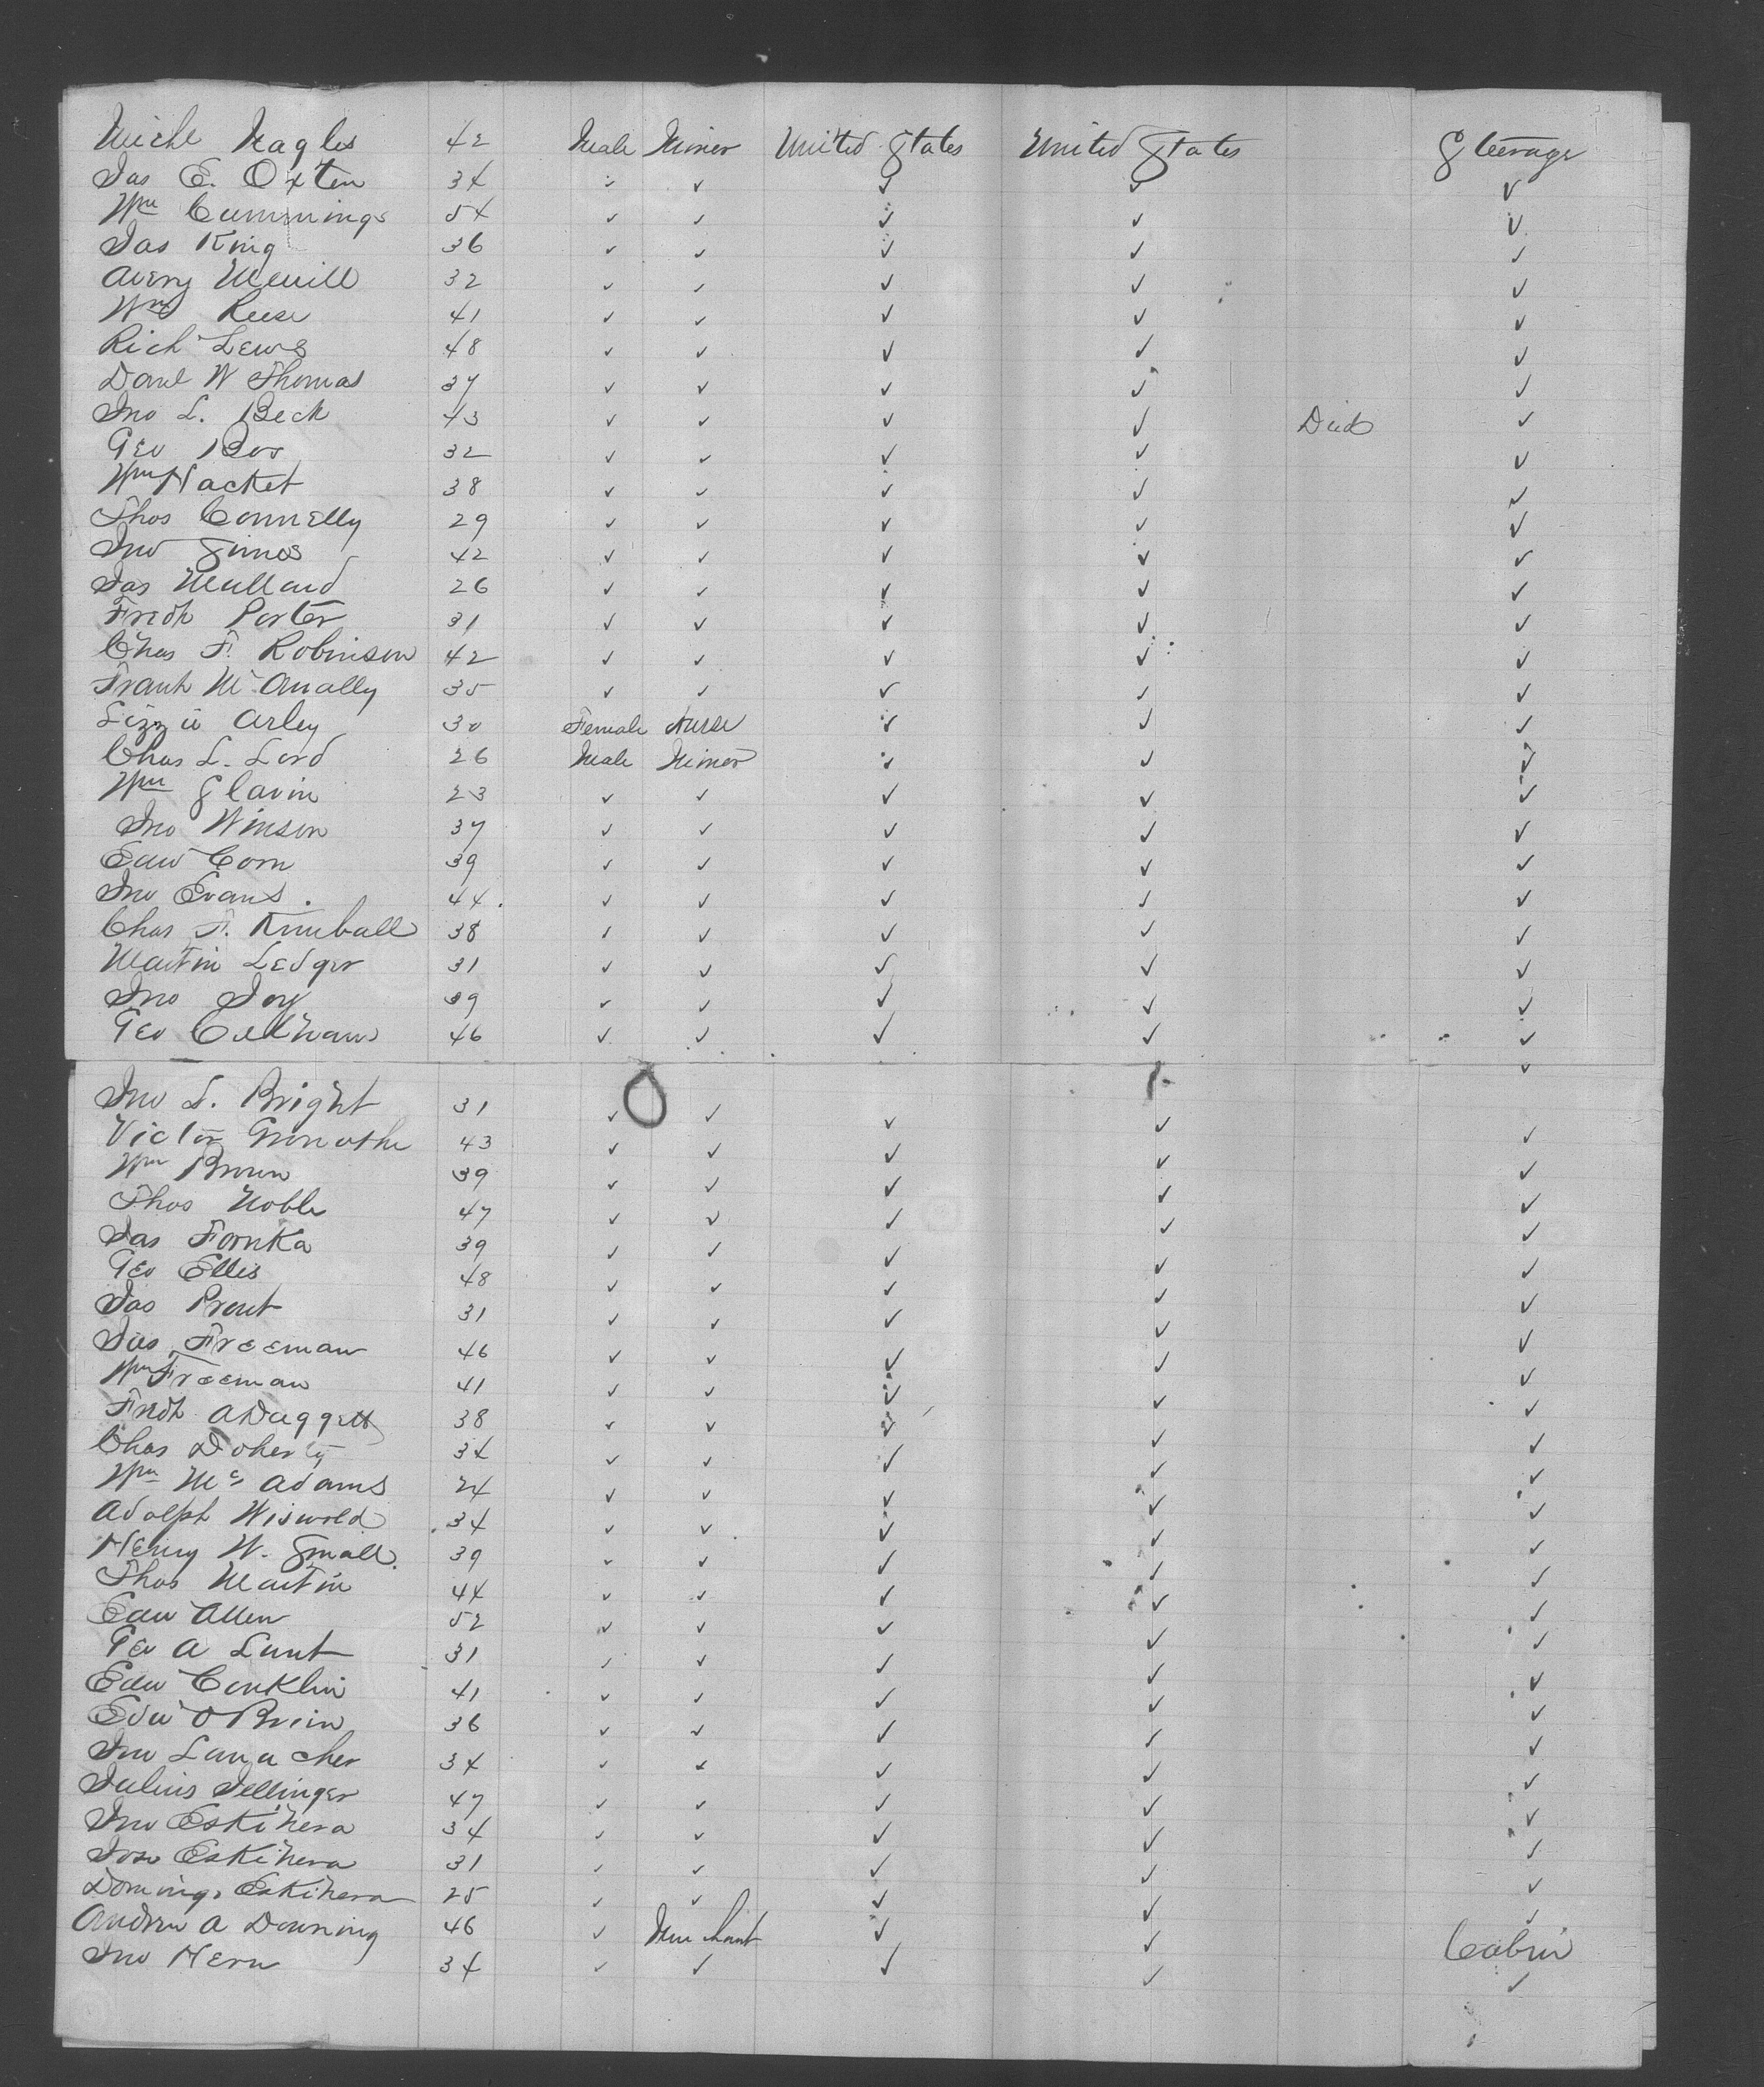 Michl Nagles 42 Male Miner United States United States Steerage
Jas E. Oxten 34 ✓ ✓ ✓ ✓ ✓
Wm Cummings 54 ✓ ✓ ✓ ✓ ✓
Jas King 36 ✓ ✓ ✓ ✓ ✓
Avery Merrill 32 ✓ ✓ ✓ ✓ ✓
Wm Reese 41 ✓ ✓ ✓ ✓ ✓
Rich Lewis 48 ✓ ✓ ✓ ✓ ✓
Danl W Thomas 37 ✓ ✓ ✓ ✓ ✓
Jno L. Beck 43 ✓ ✓ ✓ ✓ Died ✓
Geo Bos 32 ✓ ✓ ✓ ✓ ✓
Wm Hacket 38 ✓ ✓ ✓ ✓ ✓
Thos Connelly 29 ✓ ✓ ✓ ✓ ✓
Jno Simos 42 ✓ ✓ ✓ ✓ ✓
Jas Mullard 26 ✓ ✓ ✓ ✓ ✓
Fredk Porter 31 ✓ ✓ ✓ ✓ ✓
Chas F. Robinson 42 ✓ ✓ ✓ ✓ ✓
Frank McAnally 35 ✓ ✓ ✓ ✓ ✓
Lizzie Arley 30 Female Nurse ✓ ✓ ✓
Chas L. Lord 26 Male Miner ✓ ✓ ✓
Wm Slavin 23 ✓ ✓ ✓ ✓ ✓
Jno Winson 37 ✓ ✓ ✓ ✓ ✓
Edw Corn 39 ✓ ✓ ✓ ✓ ✓
Jno Evans. 44. ✓ ✓ ✓ ✓ ✓
Chas F. Kimball 38 ✓ ✓ ✓ ✓ ✓
Martin Ledger 31 ✓ ✓ ✓ ✓ ✓
Jno Joy 39 ✓ ✓ ✓ ✓ ✓
Geo 46 ✓ ✓ ✓ ✓ ✓
Jno L. Bright 31 ✓ ✓ ✓ ✓ ✓
Victor 43 ✓ ✓ ✓ ✓ ✓
Wm Brown 39 ✓ ✓ ✓ ✓ ✓
Thos Noble 47 ✓ ✓ ✓ ✓ ✓
Jas Fornka 39 ✓ ✓ ✓ ✓ ✓
Geo Ellis 48 ✓ ✓ ✓ ✓ ✓
Jas Prout 31 ✓ ✓ ✓ ✓ ✓
Jas Freeman 46 ✓ ✓ ✓ ✓ ✓
Wm Freeman 41 ✓ ✓ ✓ ✓ ✓
Fredk A Daggett 38 ✓ ✓ ✓ ✓ ✓
Chas Doherty 34 ✓ ✓ ✓ ✓ ✓
Wm Mc Adams 24 ✓ ✓ ✓ ✓ ✓
Adolph Wiswold 34 ✓ ✓ ✓ ✓ ✓
Henry W. Small. 39 ✓ ✓ ✓ ✓ ✓
Thos Martin 44 ✓ ✓ ✓ ✓ ✓
Edw Allen 52 ✓ ✓ ✓ ✓ ✓
Geo A Lunt 31 ✓ ✓ ✓ ✓ ✓
Edw Conklin 41 ✓ ✓ ✓ ✓ ✓
Edw O Brien 36 ✓ ✓ ✓ ✓ ✓
Jno 34 ✓ ✓ ✓ ✓ ✓
Julius Jellinger 47 ✓ ✓ ✓ ✓ ✓
Jno Eskihera 34 ✓ ✓ ✓ ✓ ✓
Jose Eskihera 31 ✓ ✓ ✓ ✓ ✓
Domingo Eskihera 25 ✓ ✓ ✓ ✓ ✓
Andrew A Downing 46 ✓ Merchant ✓ ✓ Cabin
Jno Hern 34 ✓ ✓ ✓ ✓ ✓